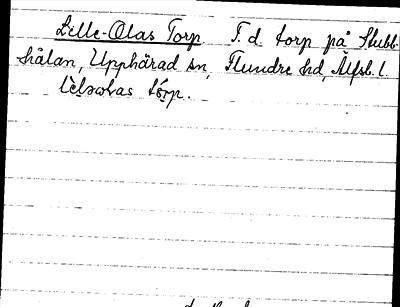 Lille-Olas Torp F. d. torp på Stubb-
hålan, Upphärad sn, Flundre hd, Älfsb. l.
lèlswlas tórp.